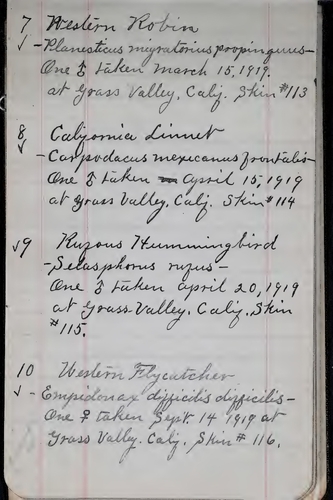 7 Western Robin
✓ -Planesticus migratorius propinquus-
One ♀ taken March 15, 1919.
at Grass Valley, Calif. Skin #113
8 California Linnet
✓ -Carpodacus mexicanus frontalis-
One ♀ taken April 15, 1919
at Grass Valley, Calif. Skin #114
✓9 Rufous Hummingbird
-Selasphorus rufus-
One ♂ taken April 20, 1919
at Grass Valley, Calif. Skin
#115.
10 Western Flycatcher
✓ -Empidonax difficilis difficilis-
One ♀ taken Sept. 14 1919 at
Grass Valley. Calif. Skin # 116.